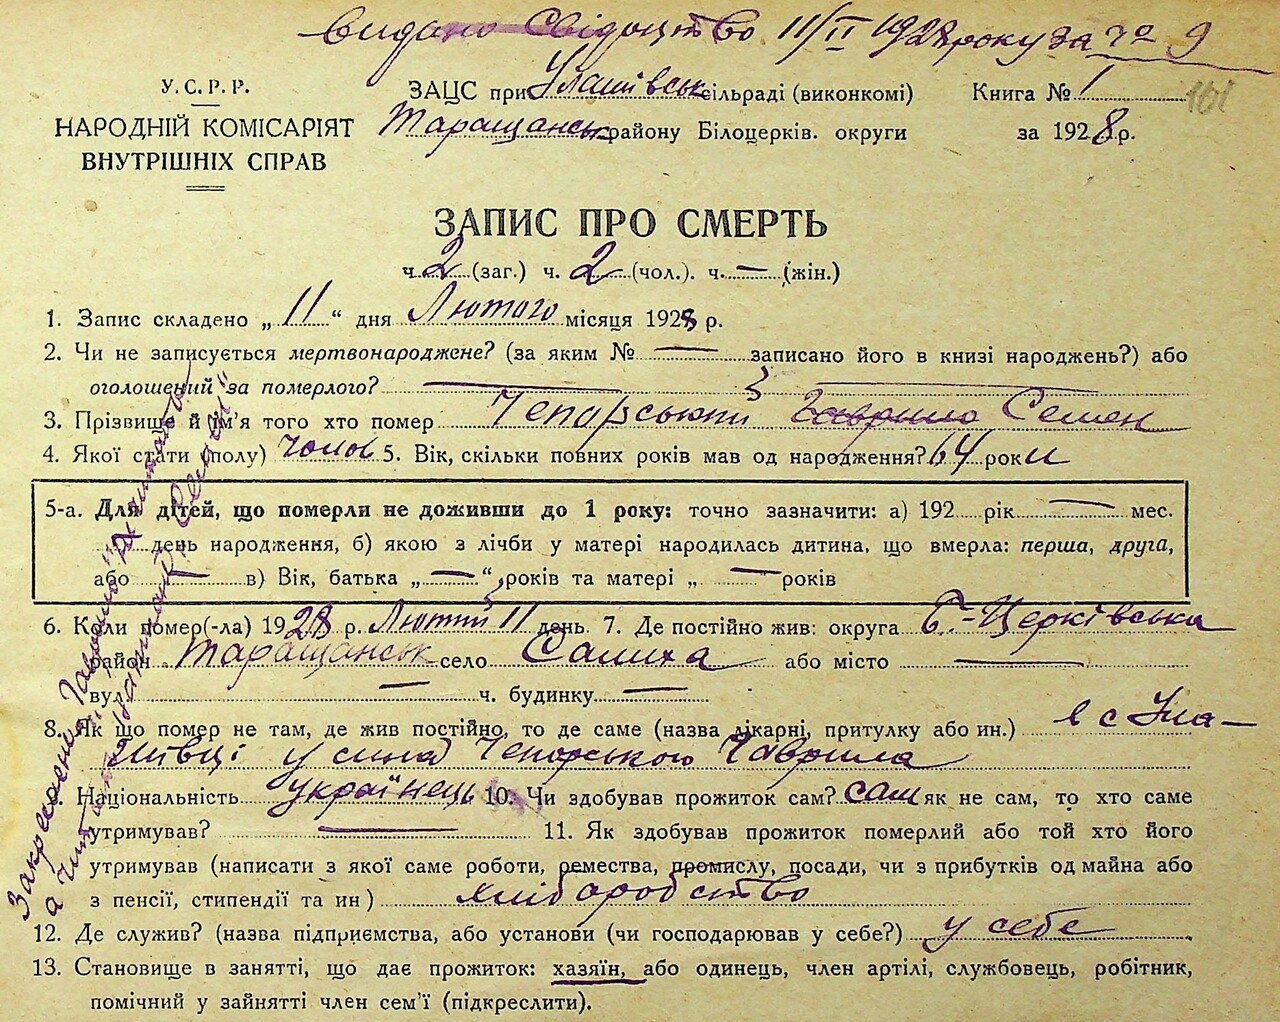 Видано свідоцтво 11/II 1928 року за № 9
У.С.Р.Р.
НАРОДНІЙ КОМІСАРІЯТ
ВНУТРІШНІХ СПРАВ
ЗАЦС при Улашівськ сільраді (виконкомі)
Таращанськ району Білоцерків. округи
Книга № 1
161
за 1928 р.
ЗАПИС ПРО СМЕРТЬ
ч. 2 (заг.) ч. 2 (чол.). ч. — (жін.)
1. Запис складено „ 11 “ дня Лютого місяця 1928 р.
2. Чи не записується мертвонароджене? (за яким № — записано його в книзі народжень?) або
оголошений за померлого? —
3. Прізвище й ім'я того хто помер Чепорський Гаврило Семен
4. Якої стати (полу) чолов 5. Вік, скільки повних років мав од народження? 64 роки
5-а. Для дітей, що померли не доживши до 1 року: точно зазначити: а) 192 рік — мес.
день народження, б) якою з лічби у матері народилась дитина, що вмерла: перша, друга,
або — в) Вік, батька „ — “ років та матері „ — років
6. Коли помер(-ла) 1928 р. Лютий 11 день 7. Де постійно жив: округа Б.-Церківська
район Таращанськ село Салиха або місто —
вул. — ч. будинку —
8. Як що помер не там, де жив постійно, то де саме (назва лікарні, притулку або ин.) в с Ула-
шівці у сина Чепорського Гаврила
9. Національність українець 10. Чи здобував прожиток сам? сам як не сам, то хто саме
утримував? — 11. Як здобував прожиток померлий або той хто його
утримував (написати з якої саме роботи, ремества, промислу, посади, чи з прибутків од майна або
з пенсії, стипендії та ин) хліборобство
12. Де служив? (назва підприємства, або установи (чи господарював у себе?) у себе
13. Становище в занятті, що дає прожиток: хазяїн, або одинець, член артілі, службовець, робітник,
помічний у зайнятті член сем'ї (підкреслити).
Закреслено „Гаврило“ не читать
а читать Семен“